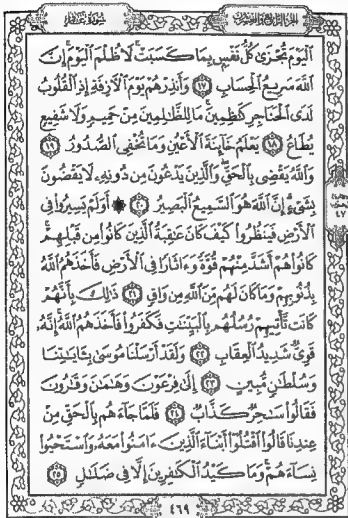 الجزء الرابع والعشرون سورة غافر
ٱلۡيَوۡمَ تُجۡزَىٰ كُلُّ نَفۡسِۭ بِمَا كَسَبَتۡۚ لَا ظُلۡمَ ٱلۡيَوۡمَۚ إِنَّ
ٱللَّهَ سَرِيعُ ٱلۡحِسَابِ ١٧ وَأَنذِرۡهُمۡ يَوۡمَ ٱلۡأٓزِفَةِ إِذِ ٱلۡقُلُوبُ
لَدَى ٱلۡحَنَاجِرِ كَٰظِمِينَۚ مَا لِلظَّٰلِمِينَ مِنۡ حَمِيمٖ وَلَا شَفِيعٖ
يُطَاعُ ١٨ يَعۡلَمُ خَآئِنَةَ ٱلۡأَعۡيُنِ وَمَا تُخۡفِي ٱلصُّدُورُ ١٩
وَٱللَّهُ يَقۡضِي بِٱلۡحَقِّۖ وَٱلَّذِينَ يَدۡعُونَ مِن دُونِهِۦ لَا يَقۡضُونَ
بِشَيۡءٍۗ إِنَّ ٱللَّهَ هُوَ ٱلسَّمِيعُ ٱلۡبَصِيرُ ٢٠ ۞ أَوَلَمۡ يَسِيرُواْ فِي
ٱلۡأَرۡضِ فَيَنظُرُواْ كَيۡفَ كَانَ عَٰقِبَةُ ٱلَّذِينَ كَانُواْ مِن قَبۡلِهِمۡۚ
كَانُواْ هُمۡ أَشَدَّ مِنۡهُمۡ قُوَّةٗ وَءَاثَارٗا فِي ٱلۡأَرۡضِ فَأَخَذَهُمُ ٱللَّهُ
بِذُنُوبِهِمۡ وَمَا كَانَ لَهُم مِّنَ ٱللَّهِ مِن وَاقٖ ٢١ ذَٰلِكَ بِأَنَّهُمۡ
كَانَت تَّأۡتِيهِمۡ رُسُلُهُم بِٱلۡبَيِّنَٰتِ فَكَفَرُواْ فَأَخَذَهُمُ ٱللَّهُۚ إِنَّهُۥ
قَوِيّٞ شَدِيدُ ٱلۡعِقَابِ ٢٢ وَلَقَدۡ أَرۡسَلۡنَا مُوسَىٰ بِـَٔايَٰتِنَا
وَسُلۡطَٰنٖ مُّبِينٍ ٢٣ إِلَىٰ فِرۡعَوۡنَ وَهَٰمَٰنَ وَقَٰرُونَ
فَقَالُواْ سَٰحِرٞ كَذَّابٞ ٢٤ فَلَمَّا جَآءَهُم بِٱلۡحَقِّ مِنۡ
عِندِنَا قَالُواْ ٱقۡتُلُوٓاْ أَبۡنَآءَ ٱلَّذِينَ ءَامَنُواْ مَعَهُۥ وَٱسۡتَحۡيُواْ
نِسَآءَهُمۡۚ وَمَا كَيۡدُ ٱلۡكَٰفِرِينَ إِلَّا فِي ضَلَٰلٖ ٢٥
٤٦٩